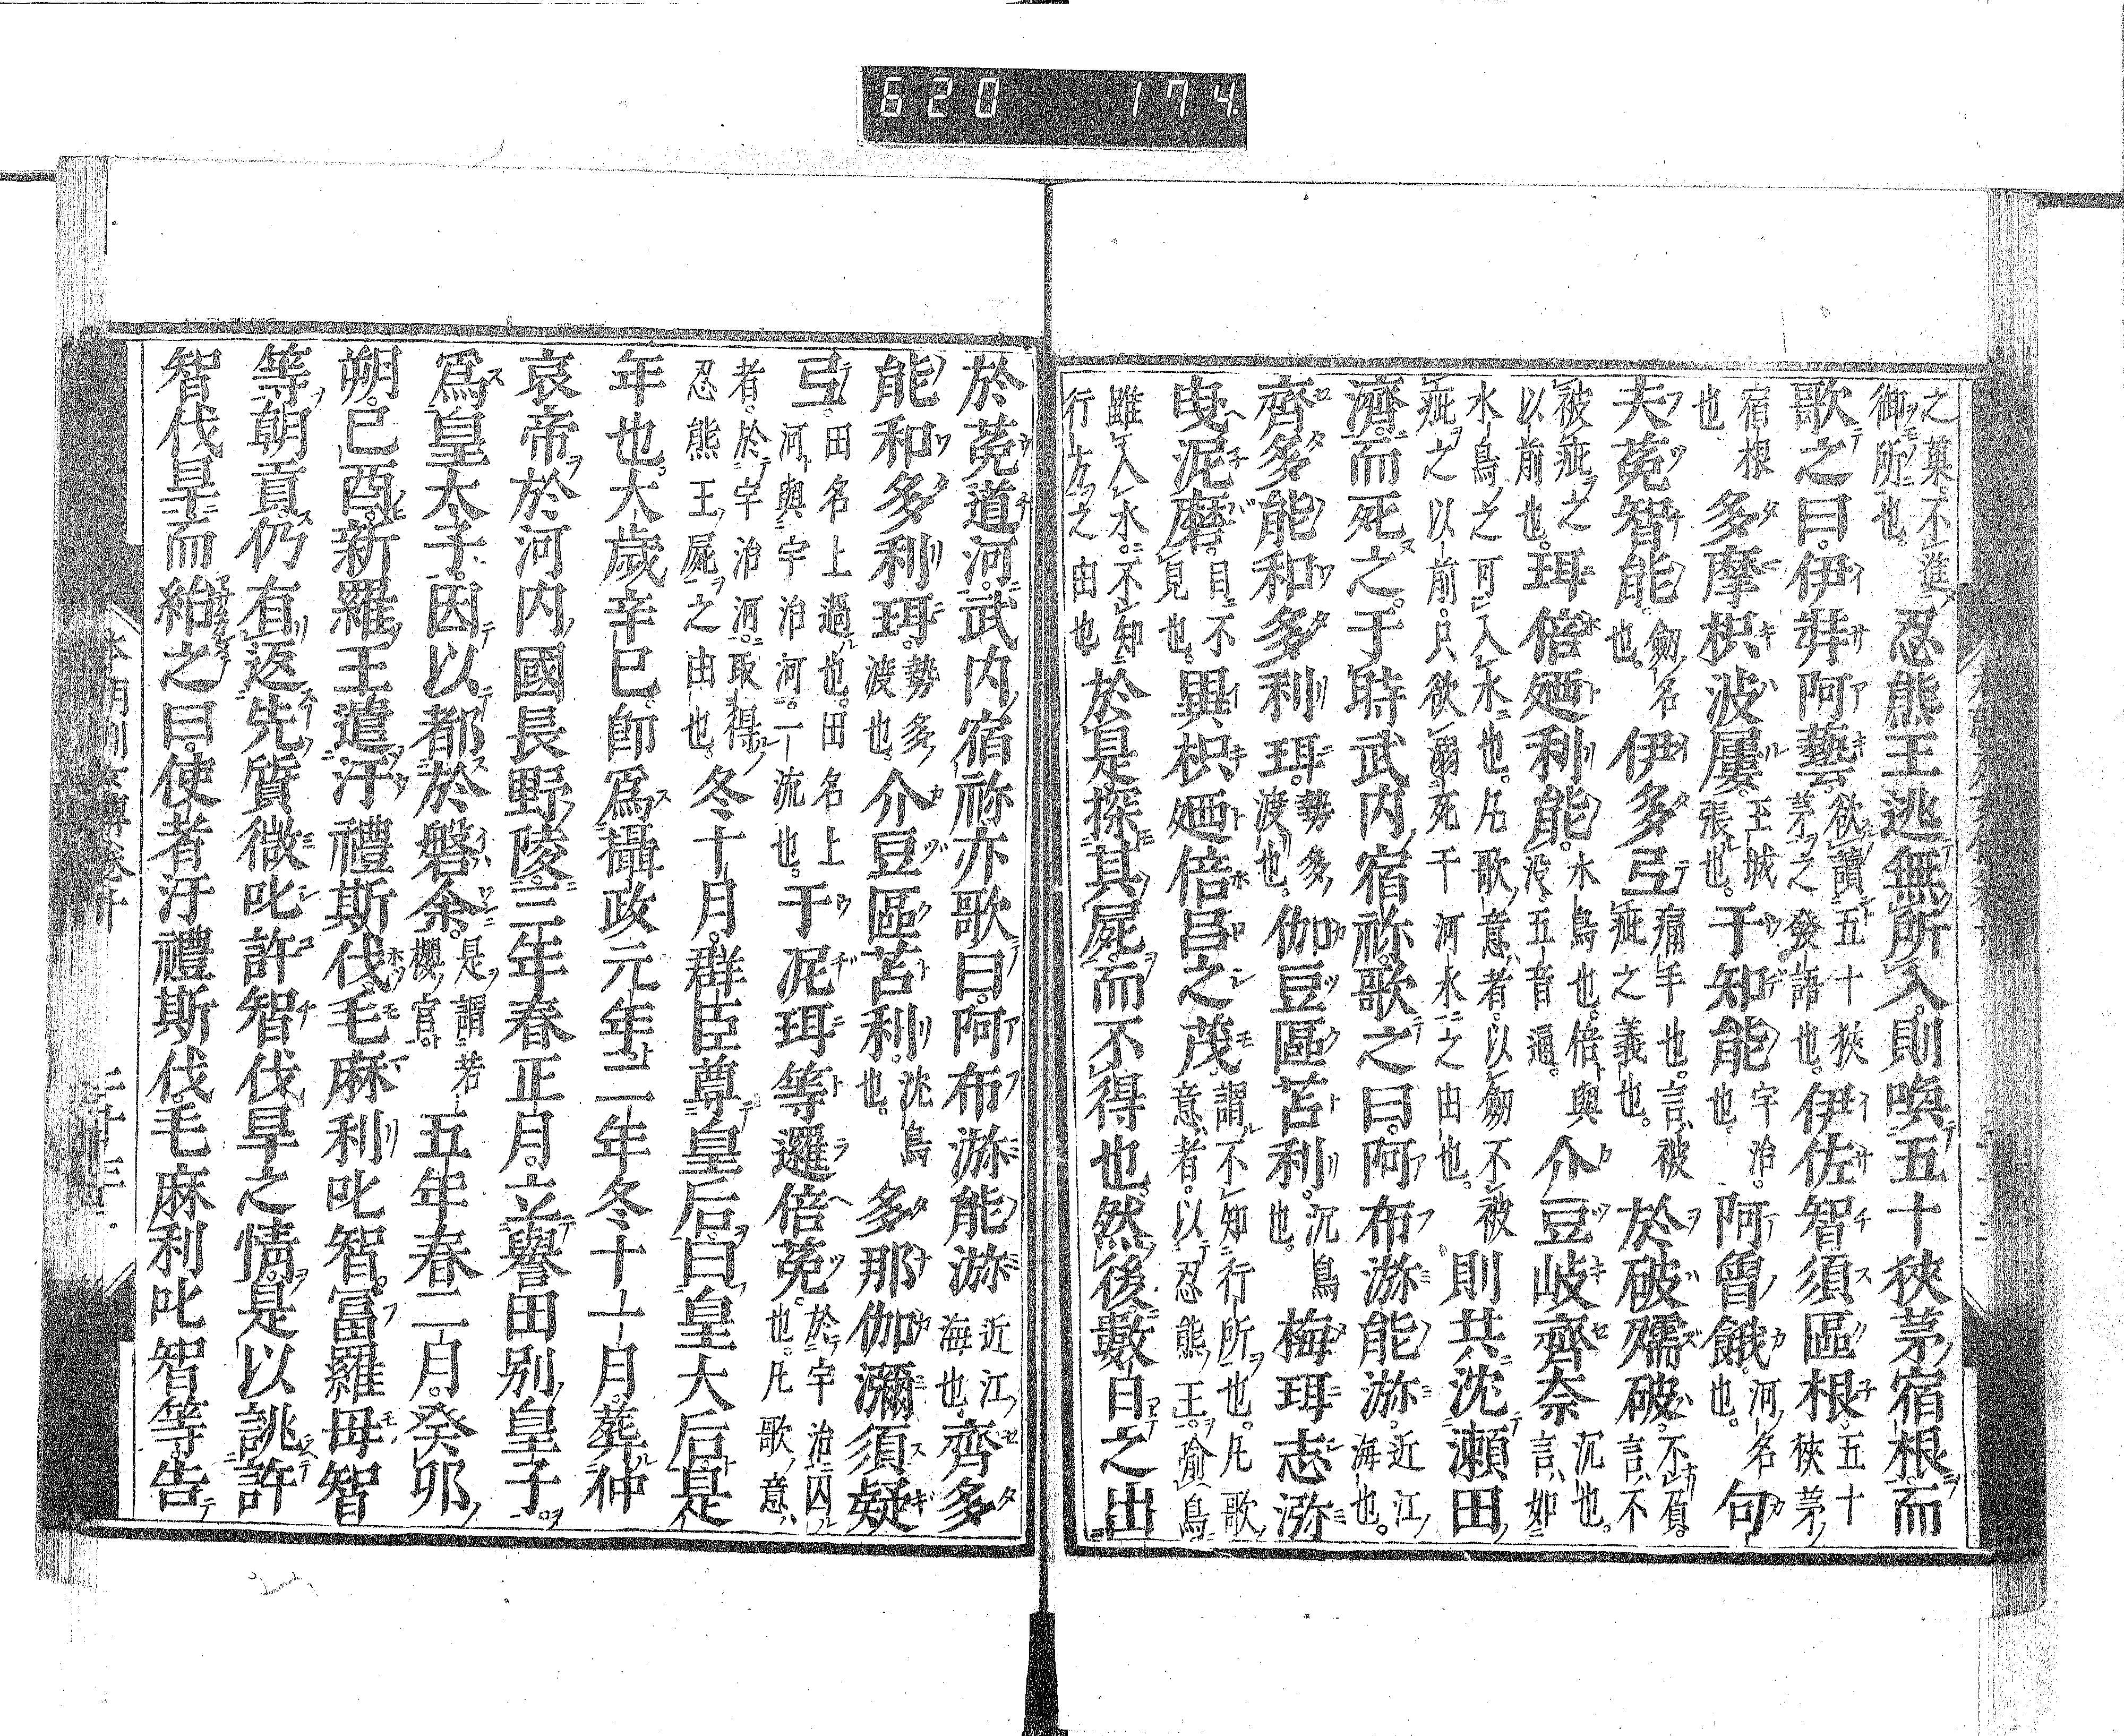 620 174.
之菓不進
御所也
忍熊王逃無所入則喚五十狹茅宿根而
歌之曰伊弉阿藝
欲讀五十狹
茅之發語也
伊佐智須區根
五十
狹茅
宿根
也
多摩枳波屢
王城
張也
于知能
宇治
也
阿曾餓
河名
也
句
夫菟智能
劔名
也
伊多弖
痛手也言被
疵之義也
於破孺破
不負
言不
被疵之
以前也
珥倍廼利能
水鳥也倍與
没五音通
介豆岐齊奈
沉也
言如
水鳥之可入水也凡歌意者以劔不被
疵之以前只欲溺死干河水之由也
則共沈瀨田
濟而死之于時武内宿祢歌之曰阿布瀰能瀰
近江
海也
齊多能和多利珥
勢多
渡也
伽豆區苫利
沉鳥
也
梅珥志瀰
曵泥磨
目不
見也
異枳廼倍呂之茂
謂不知行所也凡歌
意者以忍熊王喻鳥
雖入水不知
行方之由也
於是探其屍而不得也然後數日之出
於菟道河武内宿祢亦歌曰阿布瀰能瀰
近江
海也
齊多
能和多利珥
勢多
渡也
介豆區苫利
沈鳥
也
多那伽瀰須疑
弖
田名上過也田名上
河與宇治河一流也
于泥珥等邏倍菟
於宇治囚
也凡歌意
者於宇治河取得
忍熊王屍之由也
冬十月群臣尊皇后曰皇大后是
年也大歲辛巳卽爲攝政元年二年冬十一月葬仲
哀帝於河内國長野陵三年春正月立譽田别皇子
爲皇太子因以都於磐余
是謂若
櫻宮
五年春二月癸卯
朔巳酉新羅王遣汙禮斯伐毛麻利叱智富羅毋智
等朝貢仍有返先質微叱許智伐早之情是以誂許
智伐旱而紿之曰使者汙禮斯伐毛麻利叱智等告